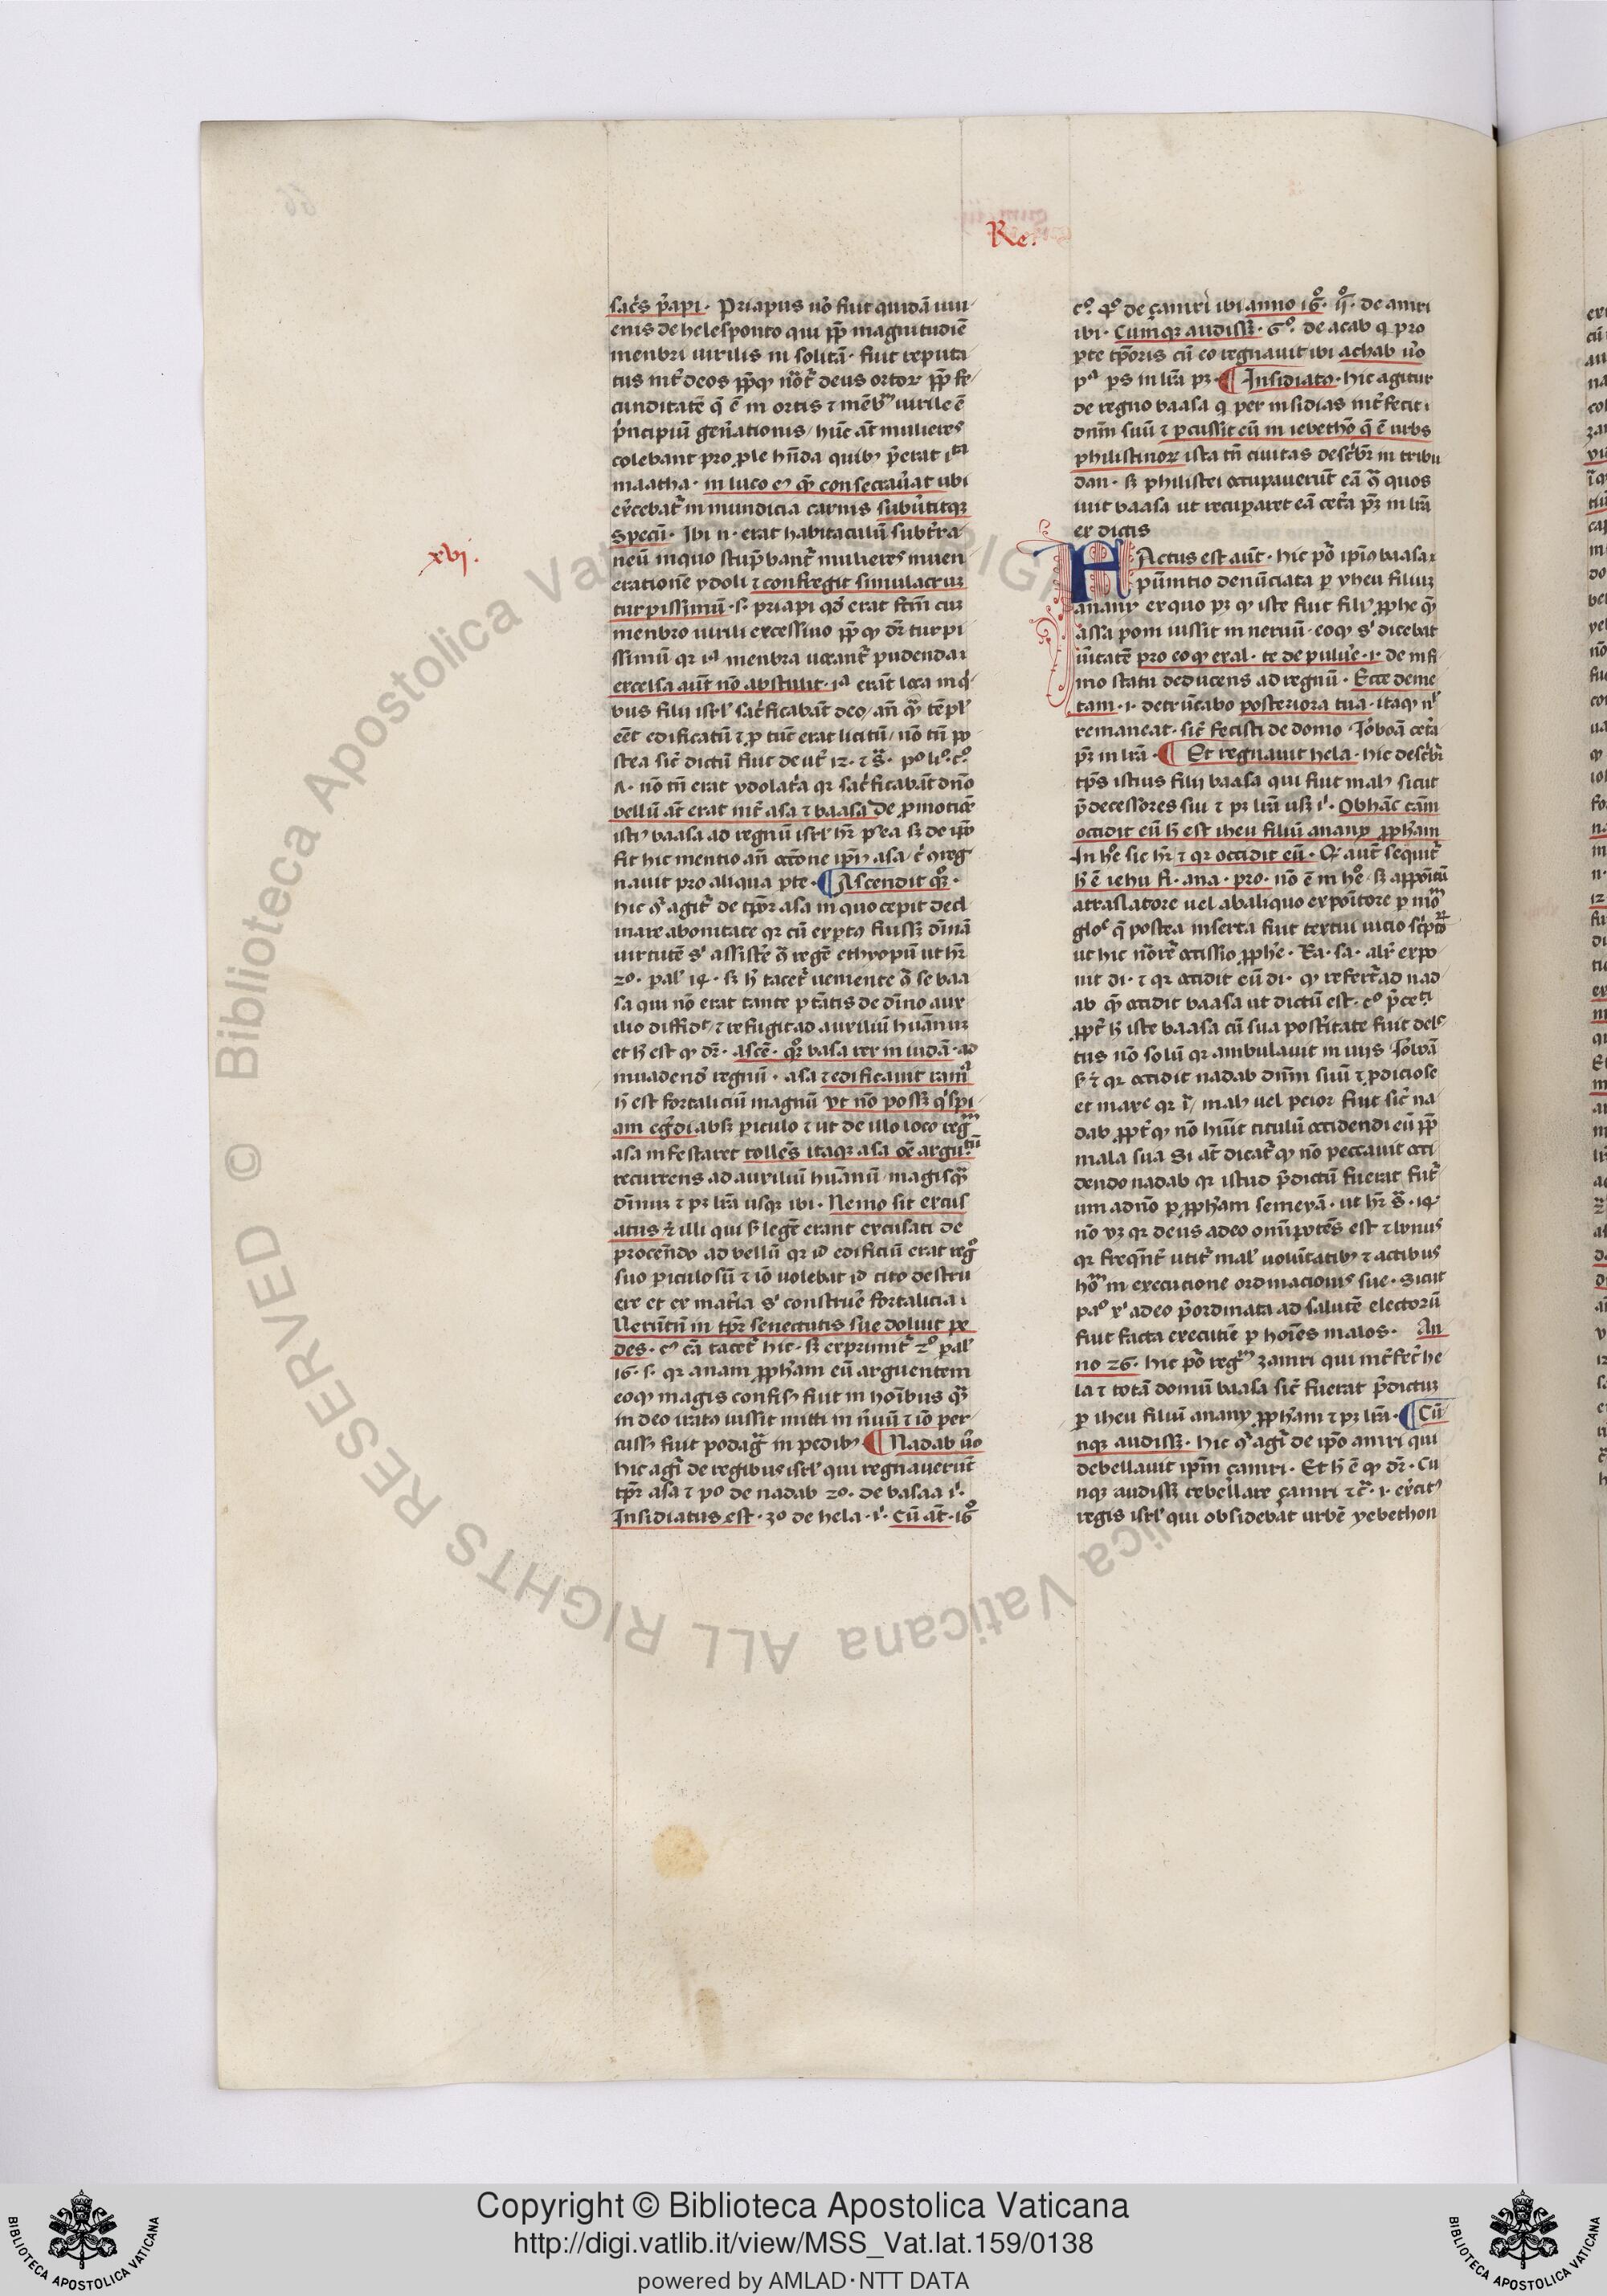 Re.
sac͛s p͛api · Priapus uo͛ fuit quidā iuu
enis de helesponto qui ꝓp̄ magnitudiē
menbri uirilis in solitā · fuit reputa
tus int͛ deos
cunditatē q̄ ē in ortis ⁊ mēb uirile ē
p͛ncipiū gen͛ationis / hūc at̄ mulieres
colebant pro ꝓle hn̄da quibꝫ p͛erat
maatha · in luco eꝰ quē consecrau͛at ubi
ex͛cebat͛ in mundicia carnis subu͛titqꝫ
specū · Ibi n · erat habitaculū subt͛ra
neū in quo stupbant͛ mulieres in uen
erationē ydoli ⁊ confregit simulacruꝫ
xvj.
turpissimū · s · priapi qd̄ erat fc̄m cuꝫ
menbro uirili excessiuo ꝓp̄ qꝫ dr̄ turpi
ssimū qr menbra uocant͛ pudenda ⁊
excelsa aūt nō abstulit · erāt loca in q͛
bus filij isrl͛ sac͛ficabāt deo / an̄ tēpl͛
eēt edificatū ⁊ ꝑ tūc erat licitū / nō tn̄ po
stea sic͛ dictū fuit deut͛ 12 ·
nō tn̄ erat ydolat͛a qr sac͛ficabāt dn̄o
bellū at̄ erat int͛ asa ⁊ baasa De ꝓmotiōe
istiꝰ baasa ad regnū isrl͛ hr̄ p͛ ea sꝫ de ip̄o
fit hic mentio an̄ occōne ipiꝰ asa
nauit pro aliqua ꝑte · ¶ Ascendit qꝫ ·
hic agit͛ de tpr̄ asa in quo cepit decl
inare a bonitate qr cū exꝑtꝰ fuissꝫ diuinā
uirtutē assist͛e regē ethyopū ut hr̄
2o · pal͛ 14 · sꝫ tacet͛ ueniente se baa
sa qui nō erat tante ptātis de diuino aux
ilio diffidꝰ / ⁊ refugit ad auxiliū huānuꝫ
et est qꝫ dr̄ · ascē · qꝫ basa rex in iudā · ad
inuadend͛ regnū · asa ⁊ edificauit rama
est fortaliciū magnū vt nō possꝫ q͛spi
am eg͛di absꝫ periculo ⁊ ut de illo loco regm
asa infestaret tollēs itaqꝫ asa oē argētū
recurrens ad auxiliū huānū / magisqꝫ
diuinū ⁊ pꝫ lr̄a usqꝫ ibi · Nemo sit excus
atus ⁊ illi qui legē erant excusati de
procendo ad bellū qr id edificiū erat regō
suo piculosū ⁊ iō uolebat id cito destru
ere et ex mat͛ia construe͛ fortalicia ⁊
Uerūtū in tpr̄ senectutis sue doluit pe
des · cā tacet͛ hic · sꝫ exprimit͛ 2o pal͛
16 · s · qr anam ꝓph̄am eū arguentem
eoqꝫ magis confisꝰ fuit in hoībus qꝫ
in deo iratꝰ iussit mitti in n͛uū ⁊ iō per
cussꝰ fuit podag͛ in pedibꝫ ¶ Nadab u͛o
hic agr̄ de regibus isrl͛ qui regnauerūt
tpr̄ asa ⁊ po de nadab 2o · de basaa
Insidiatus est · 3o de hela · Cū at̄ · 16
co · 4o de çamri ibi anno 16 · de amri
ibi · Cumqꝫ audissꝫ · 6o · de acab q pro
pte tpōris cū eo regnauit ibi achab u͛o
pa ps in lr̄a pꝫ · ¶ Insidiatꝰ · hic agitur
de regno baasa q per insidias int͛fecit ⁊
dn̄m suū ⁊ pcussit eū in iebethō q ē urbs
philistinoꝝ ista tn̄ ciuitas desc͛br̄ in tribu
dan · sꝫ philistei occupauerūt eā quos
iuit baasa ut recuperaret eā cet͛a pꝫ in lr̄a
ex dictis
FActus est aūt · hic po͛ ipīo baasa ⁊
punitio denūciata ꝑ yheu filiuꝫ
anany ex quo pꝫ qꝫ iste fuit filiꝰ ꝓphe quē
assa poni iussit in neruū · eoqꝫ dicebat
u͛itatē pro eo qꝫ exal · te de pulu͛e · i · de infi
mo statu deducens ad regnū · Ecce deme
tam · i · detrūcabo posteriora tua · ita qꝫ
remaneat · sic͛ fecisti de domo · Ioboā cet͛a
pꝫ in lr̄a · ¶ Et regnauit hela · hic desc͛br̄
tp̄s istius filij baasa qui fuit malꝰ sicut
p͛decessores sui ⁊ pꝫ lr̄a usꝫ · Ob hāc cām
occidit eū est iheu filiū anany ꝓph̄am
In heo sic hr̄ ⁊ qr occidit eū · aūt sequit͛
ē iehu fi · ana · pro · nō ē in heo / sꝫ appoītū
a traslatore uel ab aliquo expoītore
q postea inserta fuit textui uicio sc͛ptoꝝ
ut hic occissio ꝓphe · Ra · sa · alr̄ expo
nit di · ⁊ qr occidit eū di · qꝫ refert͛ ad nad
ab quē occidit baasa ut dictū est
ꝓpt͛ iste baasa cū sua post͛itate fuit dele
tus nō solū qr ambulauit in uiis Ioboā
qr occidit nadab dn̄m suū ⁊ ꝓdiciose
et maxe qr malꝰ uel peior fuit sic͛ na
dab ꝓpt͛ qꝫ nō hūit titulū occidendi eū ꝓp̄
mala sua Si at̄ dicat͛ qꝫ nō peccauit occi
dendo nadab qr istud p͛dictū fuerat fut͛
um a dn̄o ꝑ ꝓph̄am semeyā · ut hr̄ · 14 ·
nō ꝫ qr deus adeo omīpotēs est ⁊ bonus
qr freqn̄t͛ utit͛ mal͛ uolūtatibꝫ ⁊ actibus
hom in executione ordinacionis sue · Sicut
pao a deo p͛ordinata ad salutē electorū
fuit facta executiē ꝑ hoīes malos · An
no 26 · hic po͛ regm zamri qui int͛fec͛ he
la ⁊ totā domū baasa sic͛ fuerat p͛dictuꝫ
ꝑ iheu filiū anany ꝓph̄am ⁊ pꝫ lr̄a · ¶ Cū
nqꝫ audissꝫ · hic agr̄ de ip̄o amri qui
debellauit ip̄m çamri · Et ē qꝫ dr̄ · Cu
nqꝫ audissꝫ rebellare çamri ⁊ · i · ex͛citꝰ
regis isrl͛ qui obsidebat urbē yebethon
Copyright © Biblioteca Apostolica Vaticana
http://digi.vatlib.it/view/MSS_Vat.lat.159/0138
powered by AMLAD·NTT DATA
BIBLIOTECA APOSTOLICA VATICANA
BIBLIOTECA APOSTOLICA VATICANA
© Biblioteca Apostolica Vaticana ALL RIGHTS RESERVED